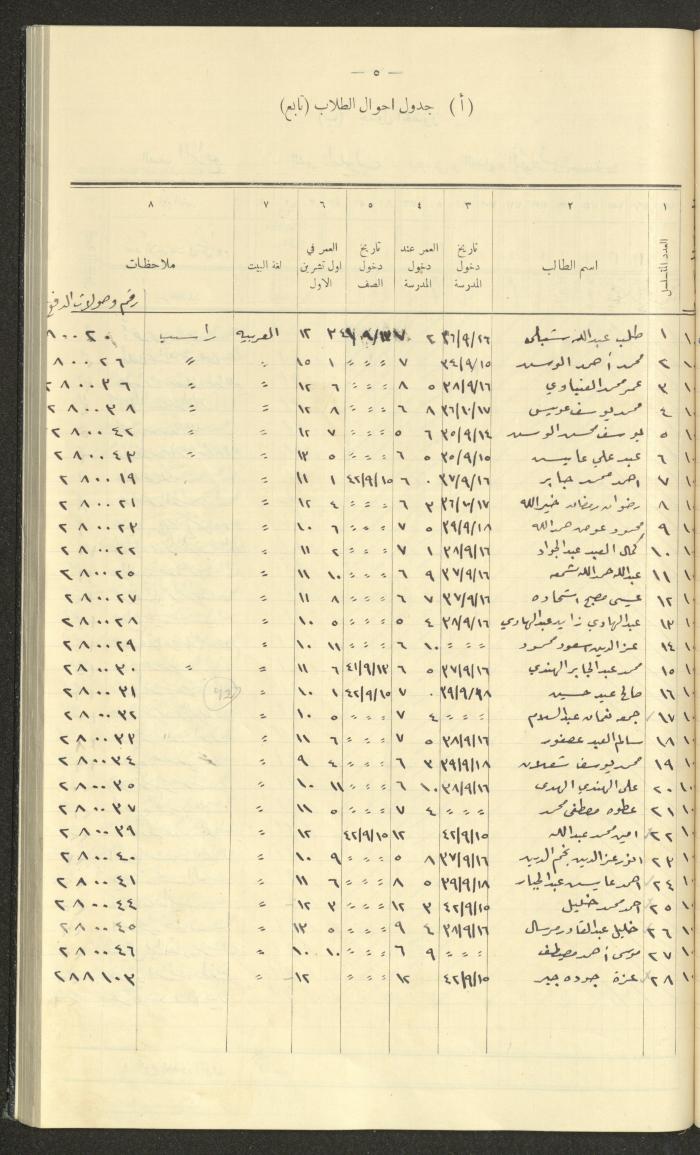 — ٥ —
(أ) جدول احوال الطلاب (تابع)
١ ٢ ٣ ٤ ٥ ٦ ٧ ٨
العدد المتسلسل اسم الطالب تاريخ دخول المدرسة العمر عند دخول المدرسة تاريخ دخول الصف العمر في اول تشرين الاول لغة البيت ملاحظات
رقم وصولات الدفع
١ طلب عبدالله ٣٦/٩/١٦ ٢ ٧ ١٢ العربية راسب
٢ محمد أحمد ٣٤/٩/١٥ ٧ " " " ١ ١٥ " " ٨٠٠٢٦
٣ عمر محمد ٣٨/٩/١٦ ٥ ٨ " " " ٦ ١٢ " " ٢٨٠٠٣٦
٤ محمد يوسف ٣٦/١٠/١٧ ٨ ٦ " " " ٨ ١٢ " " ٢٨٠٠٣٨
٥ يوسف محسن ٣٥/٩/١٤ ٦ ٥ " " " ٧ ١٢ " " ٢٨٠٠٤٢
٦ عبد علي ٣٥/٩/١٥ ٥ ٦ " " " ٥ ١٣ " " ٢٨٠٠٤٣
٧ احمد محمد جابر ٣٧/٩/١٦ ٠ ٦ ٤٢/٩/١٥ ١ ١١ " ٢٨٠٠١٩
٨ رضوان رمضان خيرالله ٣ ٦ " " " ٤ ١٢ " ٢٨٠٠٢١
٩ محمود عوض حمدالله ٣٩/٩/١٨ ٥ ٧ " " " ٦ ١٠ " ٢٨٠٠٢٣
١٠ كمال العبد عبدالجواد ٣٨/٩/١٦ ١ ٧ " " " ٢ ١١ " ٢٨٠٠٢٢
١١ عبدالله حمدالله ٣٧/٩/١٦ ٩ ٦ " " " ١٠ ١١ " ٢٨٠٠٢٥
١٢ عيسى مصبح ٣٧/٩/١٦ ٧ ٦ " " " ٨ ١١ " ٢٨٠٠٢٧
١٣ عبدالهادي زايد عبدالهادي ٣٨/٩/١٦ ٤ ٥ " " " ٥ ١٠ " ٢٨٠٠٢٨
١٤ عزالدين سعود محمود " " " ١٠ ٦ " " " ١١ ١٠ " ٢٨٠٠٢٩
١٥ محمد عبدالجابر الهندي ٣٧/٩/١٦ ٥ ٦ ٤١/٩/١٣ ٦ ١١ " " ٢٨٠٠٣٠
١٦ صالح عيد حسين ٣٩/٩/١٨ ٠ ٧ ٤٢/٩/١٥ ١ ١٠ " ٢٨٠٠٣١
١٧ جمعه نعمان عبدالسلام " " " ٤ ٧ " " " ٥ ١٠ " ٢٨٠٠٣٢
١٨ سالم العبد عصفور ٣٨/٩/١٦ ٥ ٧ " " " ٦ ١١ " ٢٨٠٠٣٣
١٩ محمد يوسف شعلان ٣٩/٩/١٨ ٣ ٦ " " " ٤ ٩ " ٢٨٠٠٣٤
٢٠ علي الهندي ٣٨/٩/١٦ ١٠ ٦ " " " ١١ ١٠ " ٢٨٠٠٣٥
٢١ عطوه مصطفى محمد " " " ٤ ٧ " " " ٥ ١١ " ٢٨٠٠٣٧
٢٢ امين محمد عبدالله ٤٢/٩/١٥ ١٢ ٤٢/٩/١٥ ١٢ " ٢٨٠٠٣٩
٢٣ انور عزالدين نجم الدين ٣٧/٩/١٦ ٨ ٥ " " " ٩ ١٠ " ٢٨٠٠٤٠
٢٤ احمد عبدالجبار ٣٩/٩/١٨ ٥ ٨ " " " ٦ ١١ " ٢٨٠٠٤١
٢٥ احمد محمد خليل ٤٢/٩/١٥ ٣ ١٢ " " " ٣ ١٢ " ٢٨٠٠٤٤
٢٦ خليل عبدالقادر مرسال ٣٨/٩/١٦ ٤ ٩ " " " ٥ ١٣ " ٢٨٠٠٤٥
٢٧ موسى أحمد مصيطف " " " ٩ ٦ " " " ١٠ ١٠ " ٢٨٠٠٤٦
٢٨ عزة جوده جبر ٤٢/٩/١٥ ١٢ " " " ١٢ " ٢٨٨١٠٣